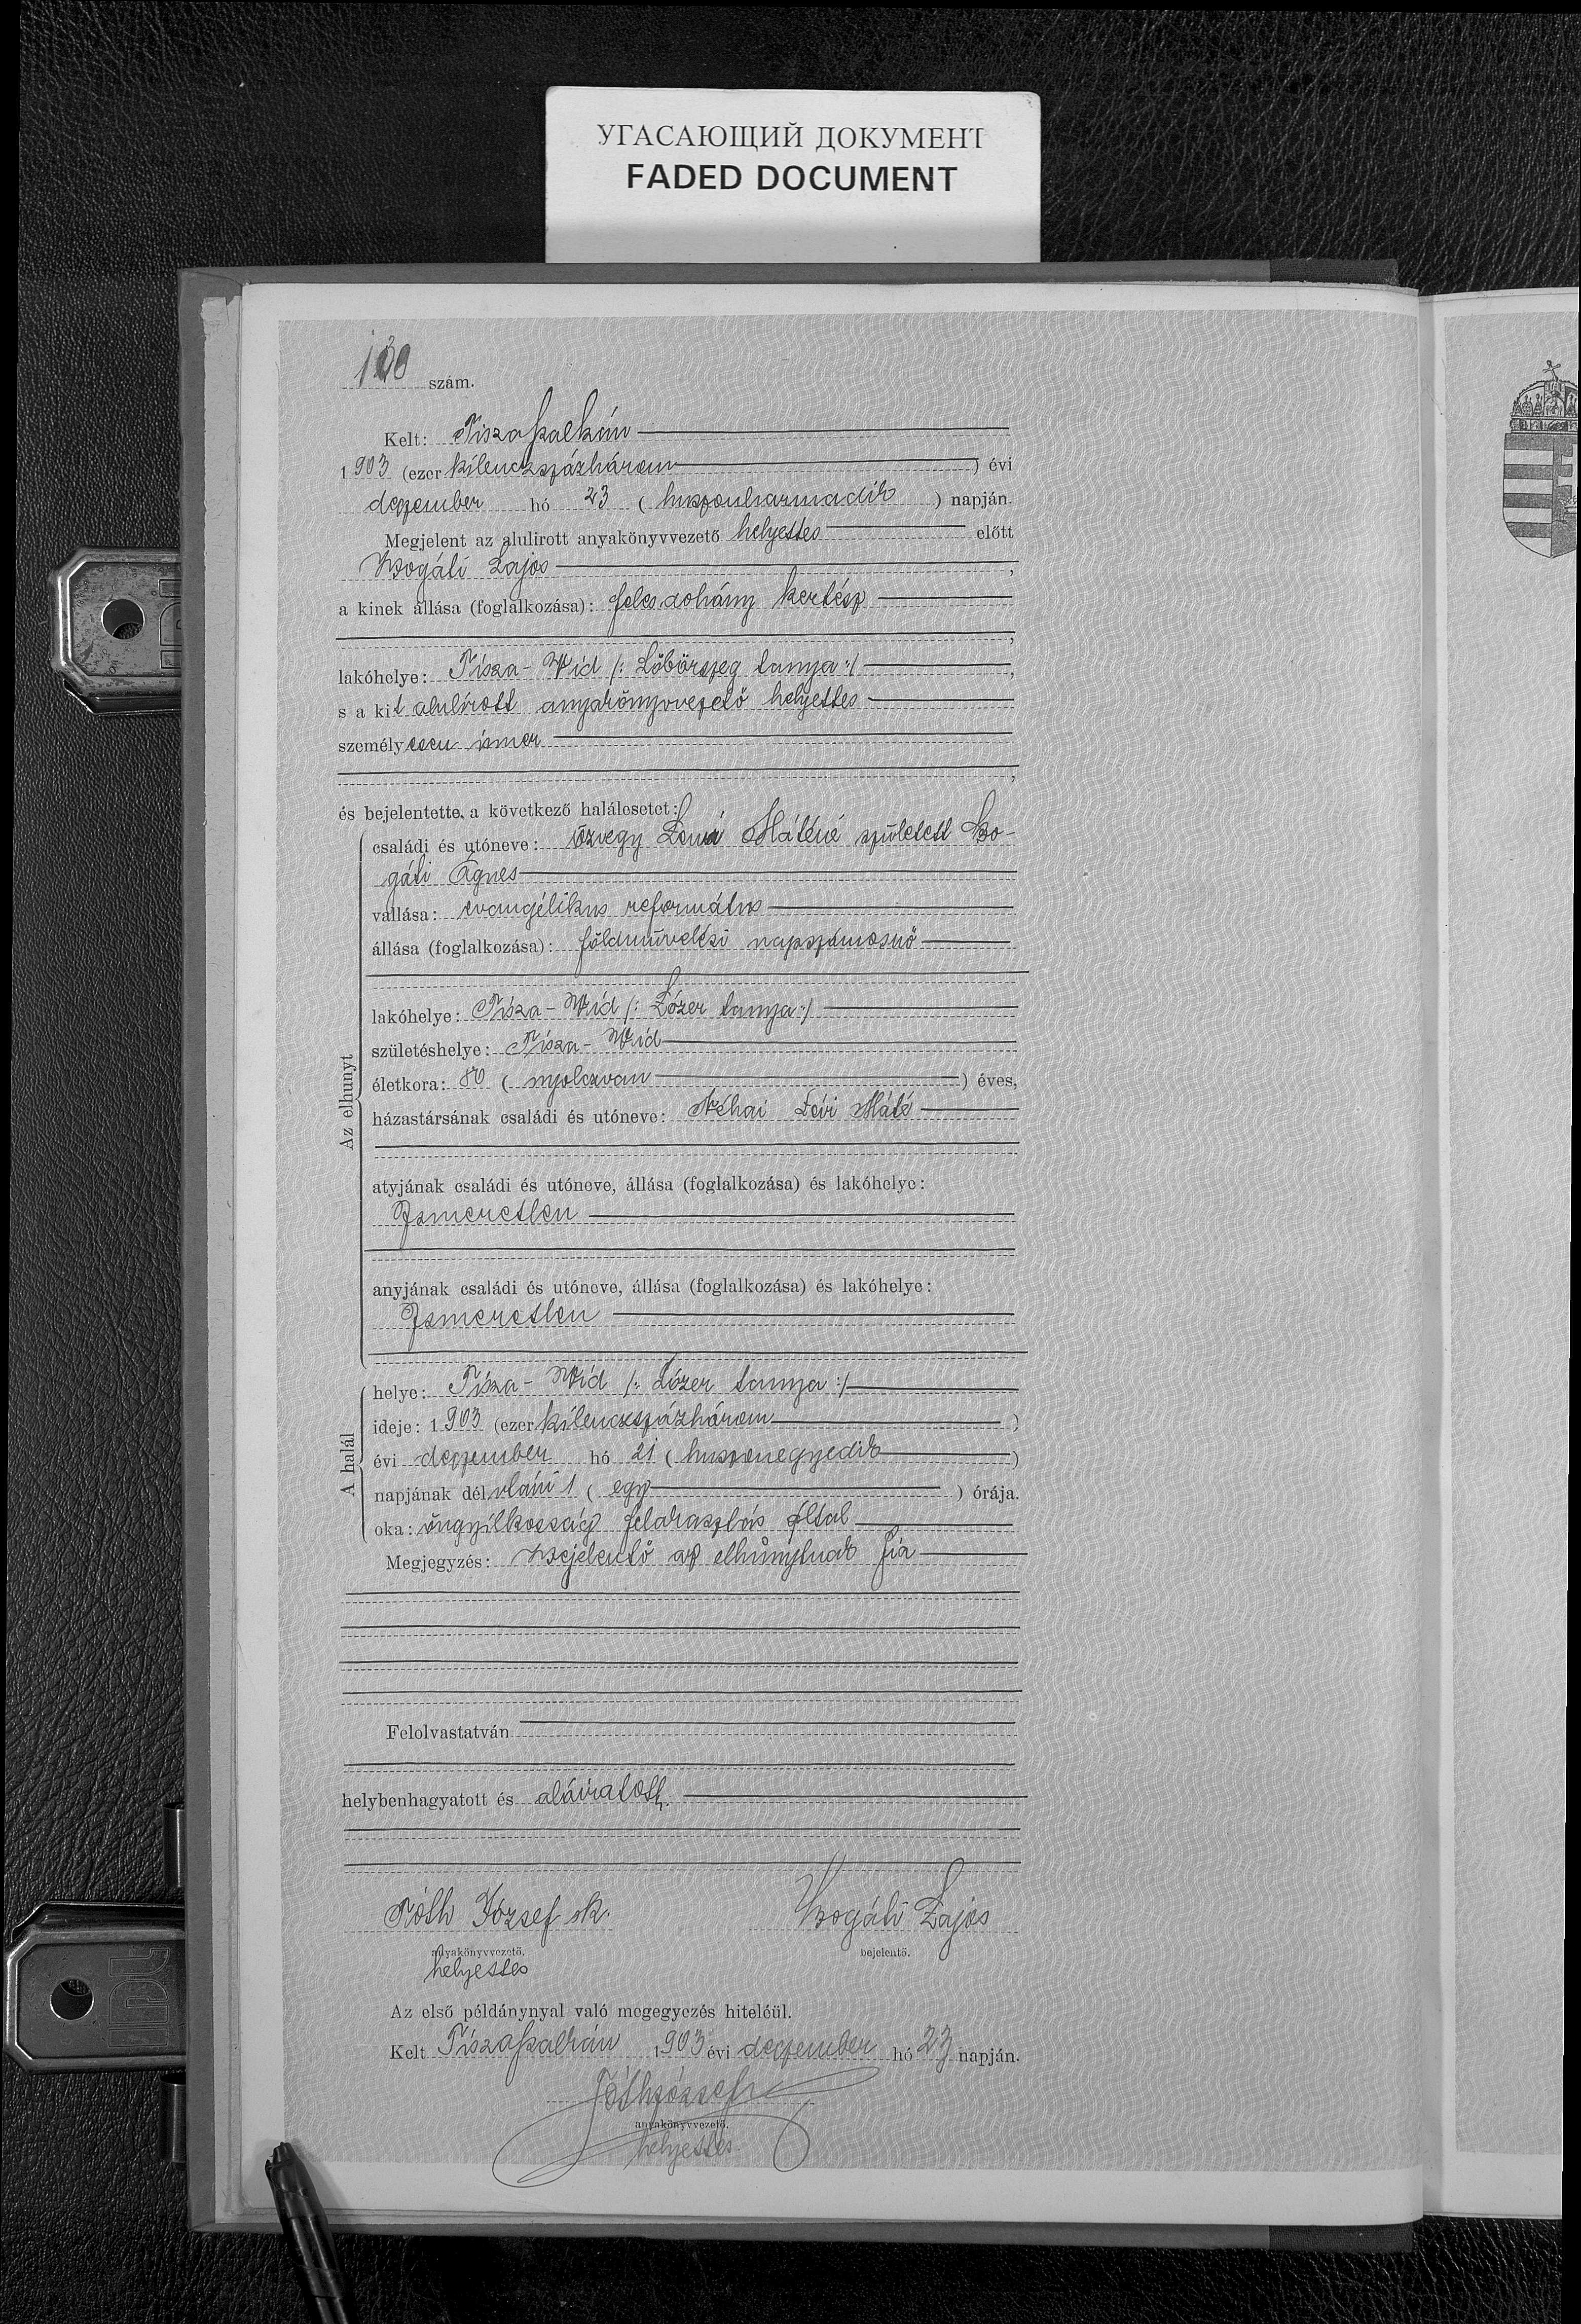 УГАСАЮЩИЙ ДОКУМЕНТ
FADED DOCUMENT
130 szám.
Kelt: Tiszaszalkán
1903 (ezer kilenczszázhárom) évi
deczember hó 23 (huszonharmadik) napján.
Megjelent az alulirott anyakönyvvezető helyettes előtt
Bogáti Lajos,
a kinek állása (foglalkozása): feles dohány kertész
,
lakóhelye: Tisza-Vid /: Löbörszeg tanya :/,
s a kit alulírott anyakönyvvezető helyettes
személyesen ismer
,
és bejelentette a következő halálesetet:
Az elhunyt
családi és utóneve: özvegy Máténé született Bo-
gáti Ágnes
vallása: evangélikus református
állása (foglalkozása): földmüvelési napszámosnő
lakóhelye: Tisza-Vid /: Lózer tanya :/
születéshelye: Tisza-Vid
életkora: 80 (nyolczvan) éves,
házastársának családi és utóneve: Néhai Máté
atyjának családi és utóneve, állása (foglalkozása) és lakóhelye:
Ismeretlen
anyjának családi és utóneve, állása (foglalkozása) és lakóhelye:
Ismeretlen
A halál
helye: Tisza-Vid /: Lózer tanya :/
ideje: 1903 (ezer kilenczszázhárom)
évi deczember hó 21 (huszonegyedik)
napjának délutáni 1 (egy) órája.
oka: öngyilkosság felakasztás által
Megjegyzés: Bejelentő az elhúnytnak fia
Felolvastatván
helybenhagyatott és aláiratott.
Tóth József sk. Bogáti Lajos
anyakönyvvezető. bejelentő.
helyettes
Az első példánynyal való megegyezés hiteléül.
Kelt Tiszaszalkán 1903 évi deczember hó 23 napján.
Tóth József
anyakönyvvezető.
helyettes